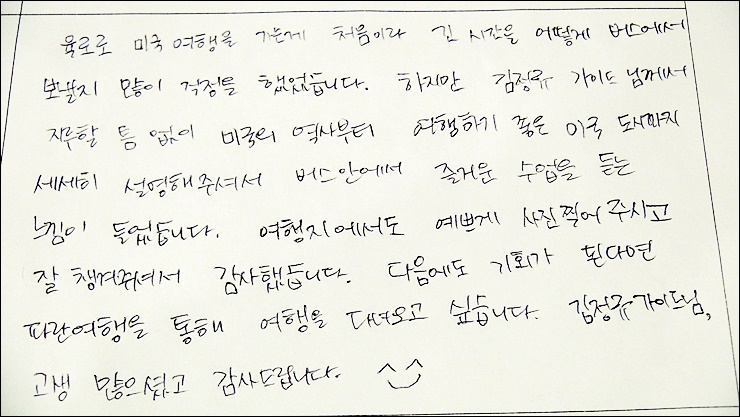 육로로 미국 여행을 가는게 처음이라 긴 시간을 어떻게 버스에서
보낼지 많이 걱정을 했었습니다. 하지만 김정류 가이드님께서
지루할 틈 없이 미국의 역사부터 여행하기 좋은 미국 도시까지
세세히 설명해주셔서 버스안에서 즐거운 수업을 듣는
느낌이 들었습니다. 여행지에서도 예쁘게 사진찍어주시고
잘 챙겨주셔서 감사했습니다. 다음에도 기회가 된다면
파란여행을 통해 여행을 다녀오고 싶습니다. 김정류가이드님,
고생 많으셨고 감사드립니다. ^‿^